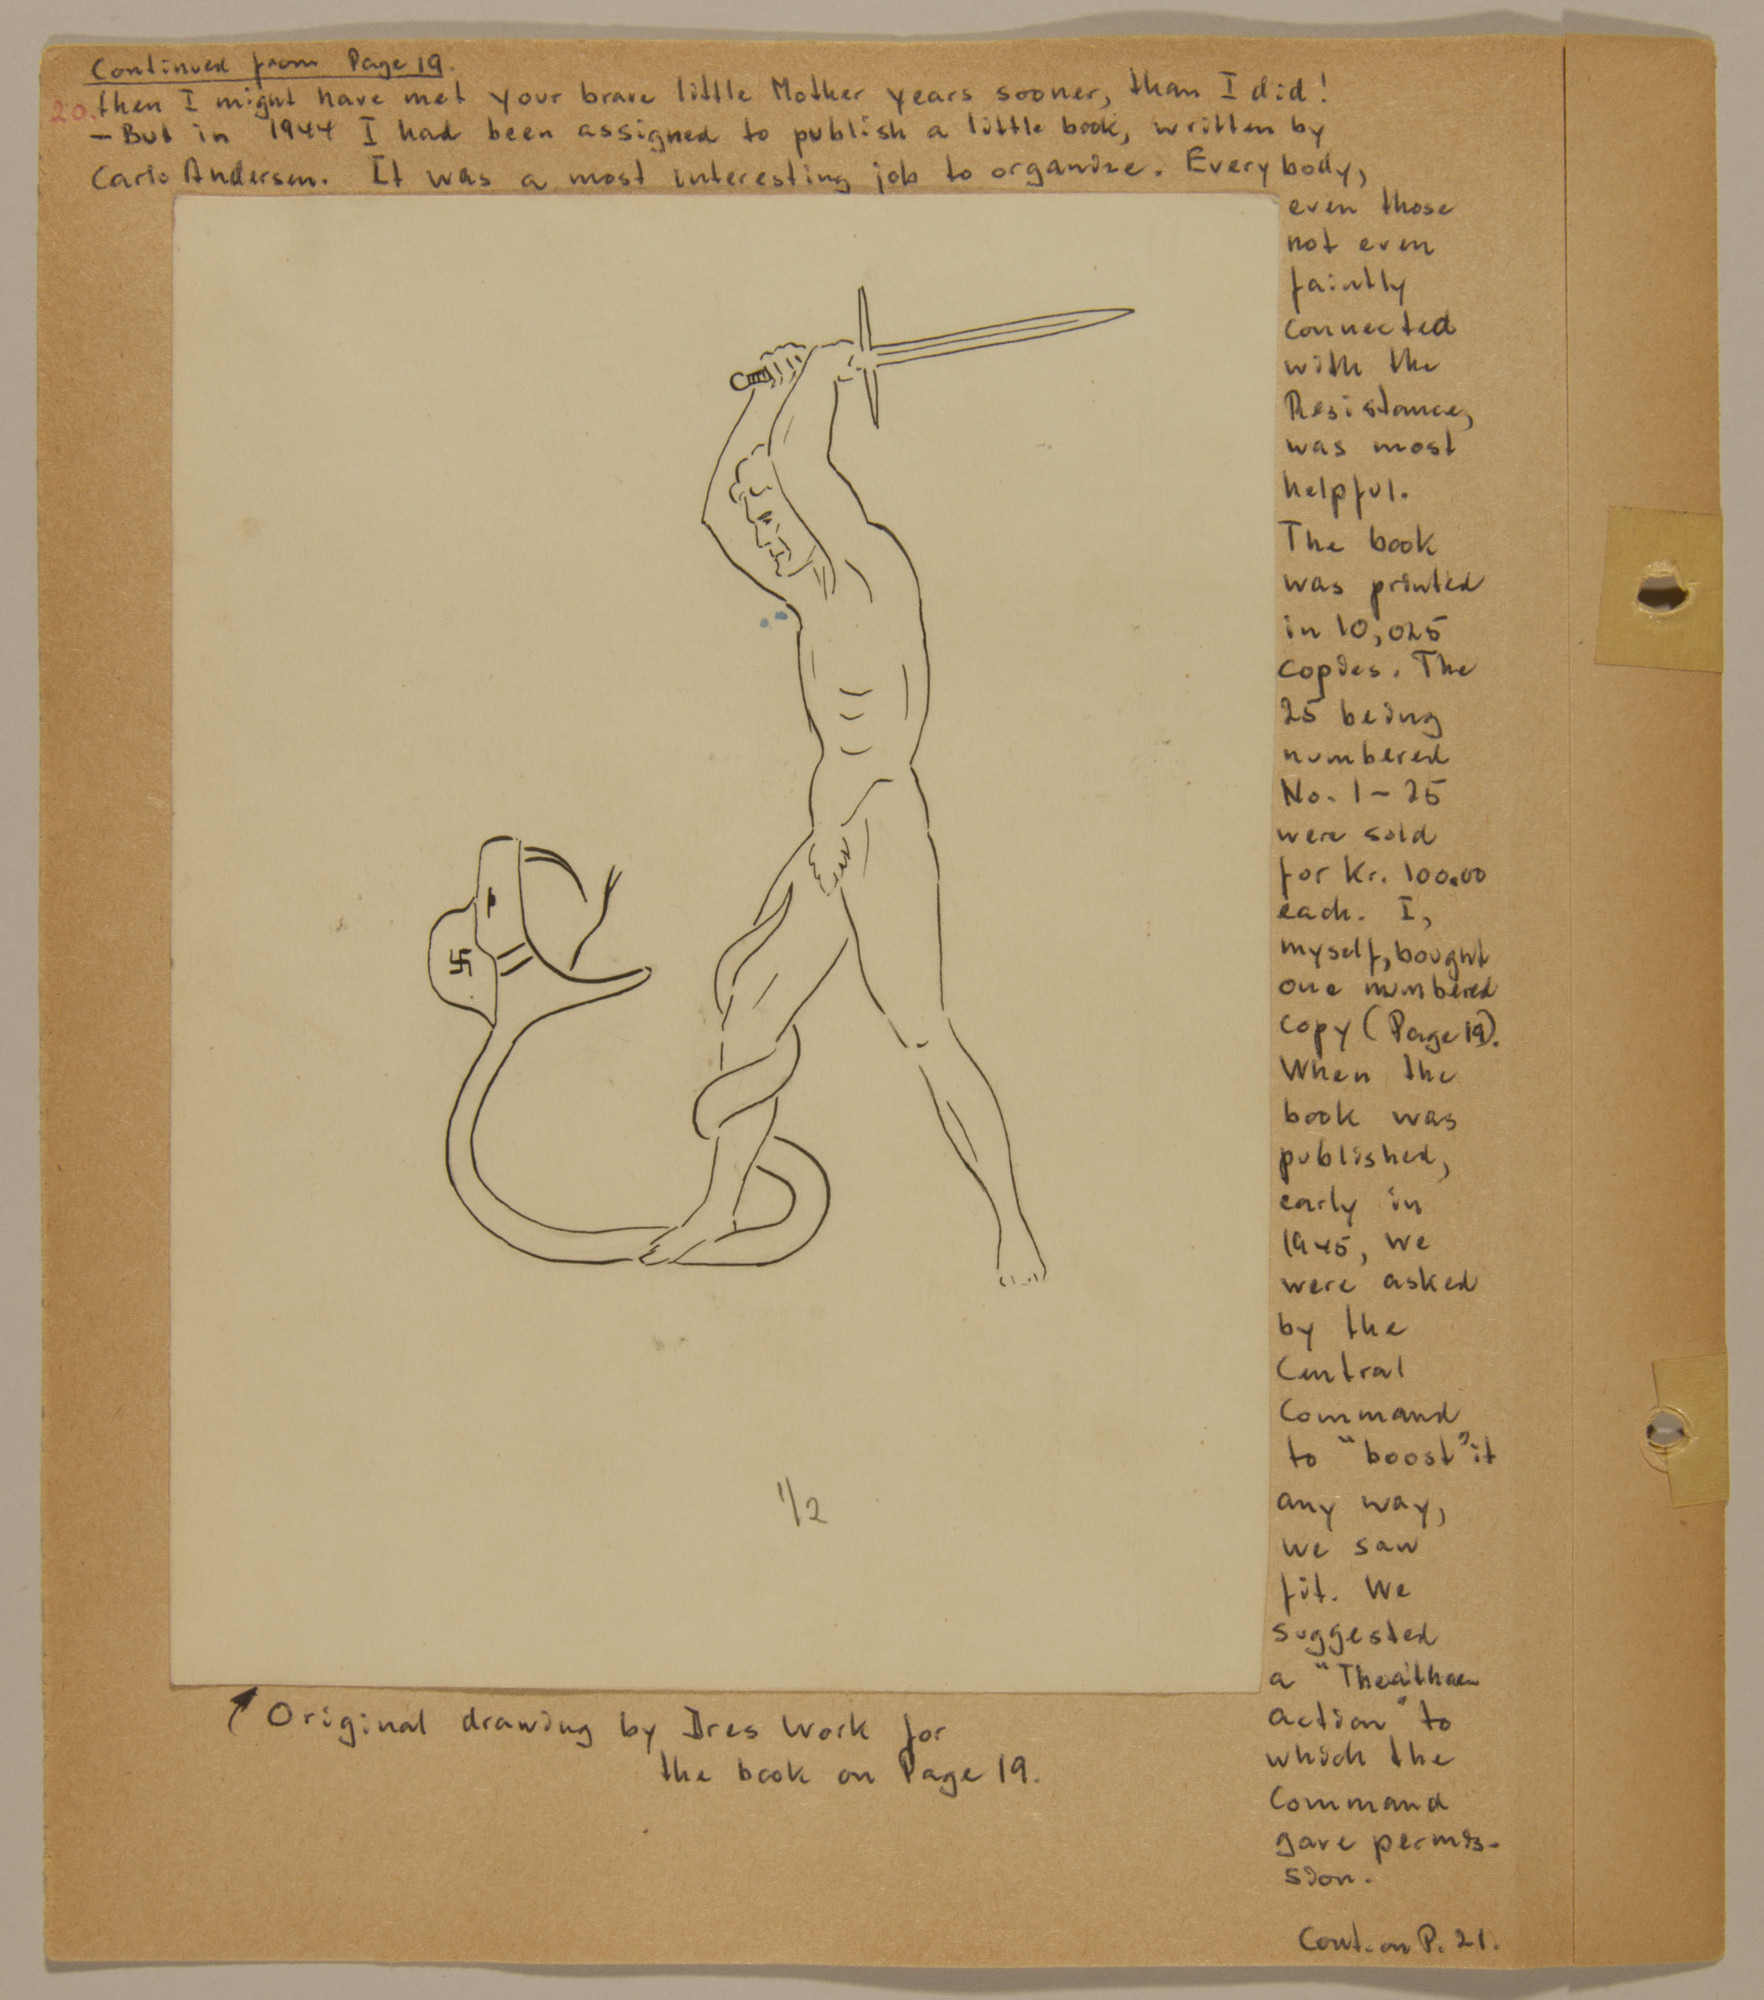 Continued from Page 19.
20. then I might have met your brave little Mother years sooner, than I did!
— But in 1944 I had been assigned to publish a little book, written by
Carlo Andersen. It was a most interesting job to organize. Everybody,
even those
not even
faintly
connected
with the
Resistance,
was most
helpful.
The book
was printed
in 10,025
copies. The
25 being
numbered
No. 1 – 25
were sold
for Kr. 100.00
each. I,
myself, bought
one numbered
copy (Page 19).
When the
book was
published,
early in
1945, we
were asked
by the
Central
Command
to "boost" it
any way,
we saw
fit. We
suggested
a "
action" to
which the
Command
gave permis-
sion.
Cont. on P. 21.
1/2
Original drawing by Ires Work for
the book on Page 19.